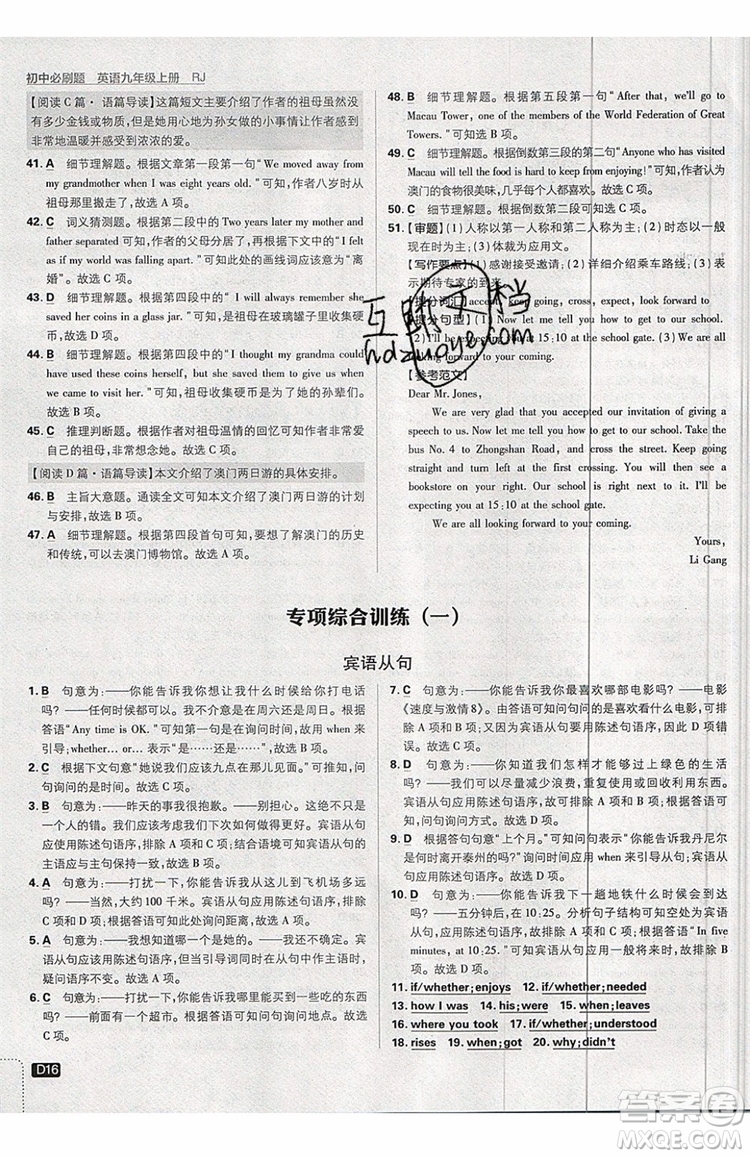 初中必刷题 英语九年级上册 RJ
【阅读C篇·语篇导读】这篇短文主要介绍了作者的祖母虽然没
有多少金钱或物质，但是她用心地为孙女做的小事情让作者感到
非常地温暖并感受到浓浓的爱。
41. A 细节理解题。根据文章第一段第一句“We moved away from
my grandmother when I was eight years old.”可知，作者八岁时从
祖母那里搬走了。故选A项。
42. C 词义猜测题。根据第二段中的Two years later my mother and
father separated可知，作者的父母分居了。根据第二段中的“I felt
as if my world was falling apart.”可知此处的画线词应该意为“离
婚”。故选C项。
43. B 细节理解题。根据第三段中的“I will always remember she
saved her coins in a glass jar.”可知，祖母在玻璃罐子里收集硬
币。故选B项。
44. B 细节理解题。根据第四段中的“I thought my grandma could
have spent her coins on herself, but she used those coins when we
came to visit her.”可知，祖母收集硬币是为了她的孙辈们。
故选B项。
45. C 推理判断题。根据作者对祖母温情的回忆可知作者非常爱
自己的祖母。故选C项。
【阅读D篇·语篇导读】本文介绍了澳门两日游的具体安排。
46. B 主旨大意题。通读全文可知本文介绍了澳门两日游的计划
与安排，故选B项。
47. A 细节理解题。根据第四段首句可知，想了解澳门的历史
和传统，可以去澳门博物馆。故选A项。
48. B 细节理解题。根据第五段第一句“After that, we'll go to
Macau Tower, one of the members of the World Federation of Great
Towers.”可知选B项。
49. C 细节理解题。根据倒数第三段的第二句“Anyone who has visited
Macau will tell the food is hard to keep from enjoying!”可知，
澳门的食物很美味，几乎每个人都喜欢。故选C项。
50. C 细节理解题。根据倒数第二段可知选C项。
51. 【审题】(1)人称以第一人称和第二人称为主；(2)时态以一般
现在时为主；(3)体裁为应用文。
【写作要点】(1)感谢接受邀请；(2)详细介绍乘车路线；(3)表
示期待专家的到来。
【提分词汇】accept, keep going, exit, look forward to
【提分句型】(1) You'll be able to get to our school. (3) We are all
looking forward to your coming.
【参考范文】
Dear Mr. Jones,
We are very glad that you have accepted our invitation of giving a
speech to us. Now let me tell you how to get to our school. Take the
bus No. 4 to Zhongshan Road, and cross the street. Keep going
straight and turn left at the first crossing. Keep going until you see a
bookstore on your right. Our school is right next to it. I will be
expecting you at 15:10 at the school gate.
We are all looking forward to your coming.
Yours,
Li Gang
互聊文档
hdzuoye.com
专项综合训练（一）
宾语从句
1. B 句意为：——你能告诉我你想让我什么时候给你打电话
吗？——任何时候都可以。我不介意是在周六还是周日。根据
答语“Any time is OK.”可知第一句是在询问时间，故用when来
引导；whether... or...表示“是……还是……”。故选B项。
2. C 根据下文句意“她说我们应该九点在那儿见面。”可推知，问
句询问时间。故选C项。
3. B 句意为：——昨天的事我很抱歉。——别担心。这不只是你
一个人的错。我们应该更清楚地理解我们所说的话。宾语从句
的主语应与主句保持一致。结合语境可知宾语从句应该用陈述
语序。故选B项。
4. A 句意为：——打扰一下，你能告诉我从这儿到飞机场多远
吗？——当然，大约100千米。宾语从句应该用陈述语序，
根据答语可知此处询问距离，故选A项。
5. A 句意为：——我想知道我怎样能到那儿。——我不确定。宾
语从句应该用陈述语序，但当引导词同时在从句中作主语时，
疑问语序即为陈述语序。故选A项。
6. C 句意为：——打扰一下，你能告诉我在哪里可以买到一些吃的东西
吗？——前面有一个超市。根据答语可知询问地点，故选
C项。
7. C 句意为：——你能告诉我你最喜欢哪部电影吗？——电影
《速度与激情8》。由答语可知问的是喜欢看什么电影，可排
除A项和B项。又因为宾语从句要用陈述语序，因此D项错误。
故选C项。
8. D 句意为：——你知道我们怎样可以过上绿色的生活
吗？——我们可以尽量减少浪费，重新使用或者回收利用东西。
宾语从句应用陈述语序，所以可排除A项和B项，根据答语可知，
问句询问方式。故选D项。
9. D 根据答句句意“上个月。”可知问句表示“你能告诉我丹尼尔
是何时离开泰州的吗？”询问时间应该用when来引导从句。故选
D项。
10. D 句意为：——打扰一下，你知道下一趟地铁什么时候会到达
吗？——五分钟后，在10:25。分析句子结构可知空处应为宾语
从句，宾语从句应该用陈述语序，故排除B项；根据答语“In five
minutes, at 10:25.”可知宾语从句应用一般将来时，故选
D项。
11. if/whether;enjoys 12. if/whether;needed
13. how I was 14. his;were 15. when;leaves
16. where you took 17. if/whether;understood
18. rises 19. when;got 20. why;didn't
D16
答案圈
MXQE.COM